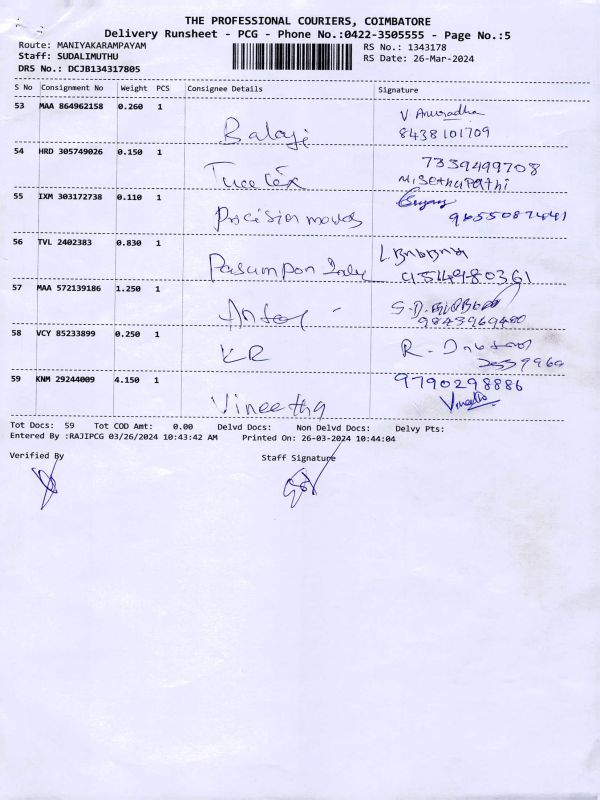 THE PROFESSIONAL COURIERS, COIMBATORE
Delivery Runsheet - PCG - Phone No.:0422-3505555 - Page No.:5
Route: MANIYAKARAMPAYAM
RS No.: 1343178
Staff: SUDALIMUTHU
RS Date: 26-Mar-2024
DRS No.: DCJB134317805
S No Consignment No Weight PCS Consignee Details Signature
53 MAA 864962158 0.260 1
V Anuradha
Balaji 8438101709
54 HRD 305749026 0.150 1
7339499708
M.Sethupathi
55 IXM 303172738 0.110 1
Precision moves
9655087441
56 TVL 2402383 0.830 1
Pasumpon 9549980361
57 MAA 572139186 1.250 1
9843969400
58 VCY 85233899 0.250 1
KR R.
59 KNM 29244009 4.150 1
9790298886
Vineetha Vineetha
Tot Docs: 59 Tot COD Amt: 0.00 Delvd Docs: Non Delvd Docs: Delvy Pts:
Entered By :RAJIPCG 03/26/2024 10:43:42 AM Printed On: 26-03-2024 10:44:04
Verified By Staff Signature